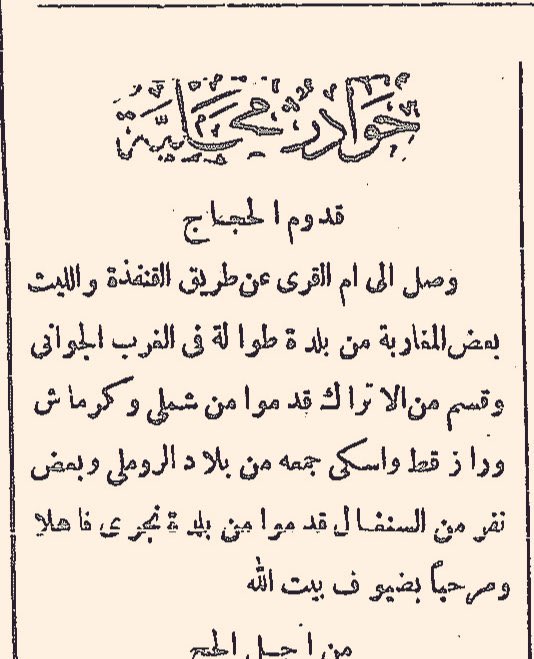 حوادث محلية
قدوم الحجاج
وصل الى ام القرى عن طريق القنفذة والليث
بعض المغاربة من بلدة طوالة فى الغرب الجوانى
وقسم من الاتراك قدموا من شملى وكرماش
وراز قط واسكى جمعه من بلاد الروملى وبعض
نفر من السنغال قدموا من بلدة نجرى فاهلا
ومرحباً بضيوف بيت الله
من اجل الحج